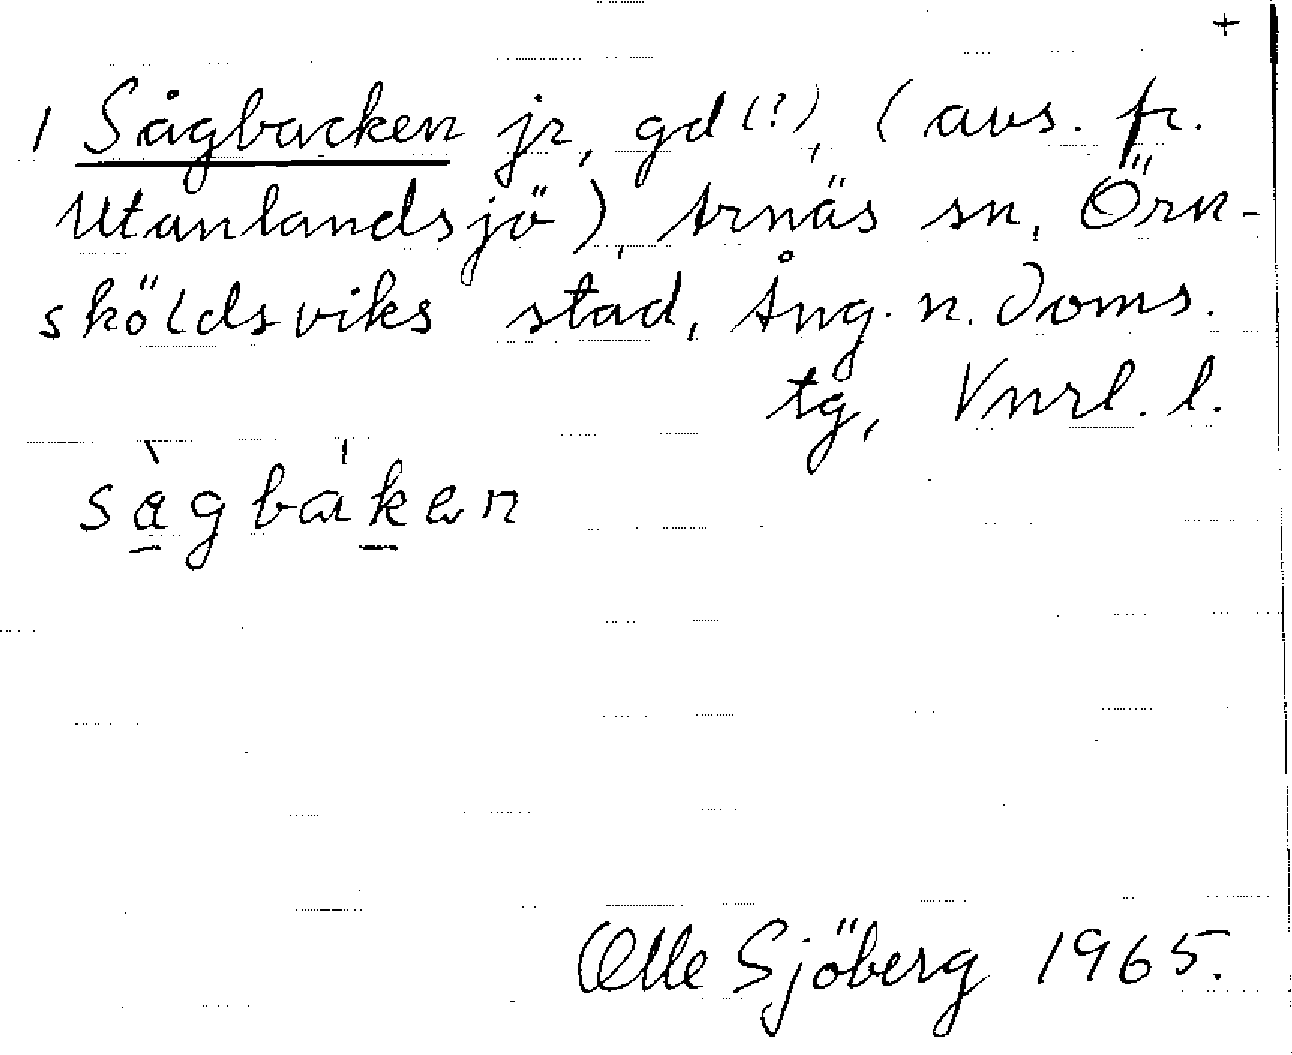 +
1 Sågbacken jr, gd (?), (avs. fr.
Utanlandsjö), Arnäs sn, Örn-
sköldsviks stad, Ång. n. doms.
tg, Vnrl. l.
sàgbàken
Olle Sjöberg 1965.